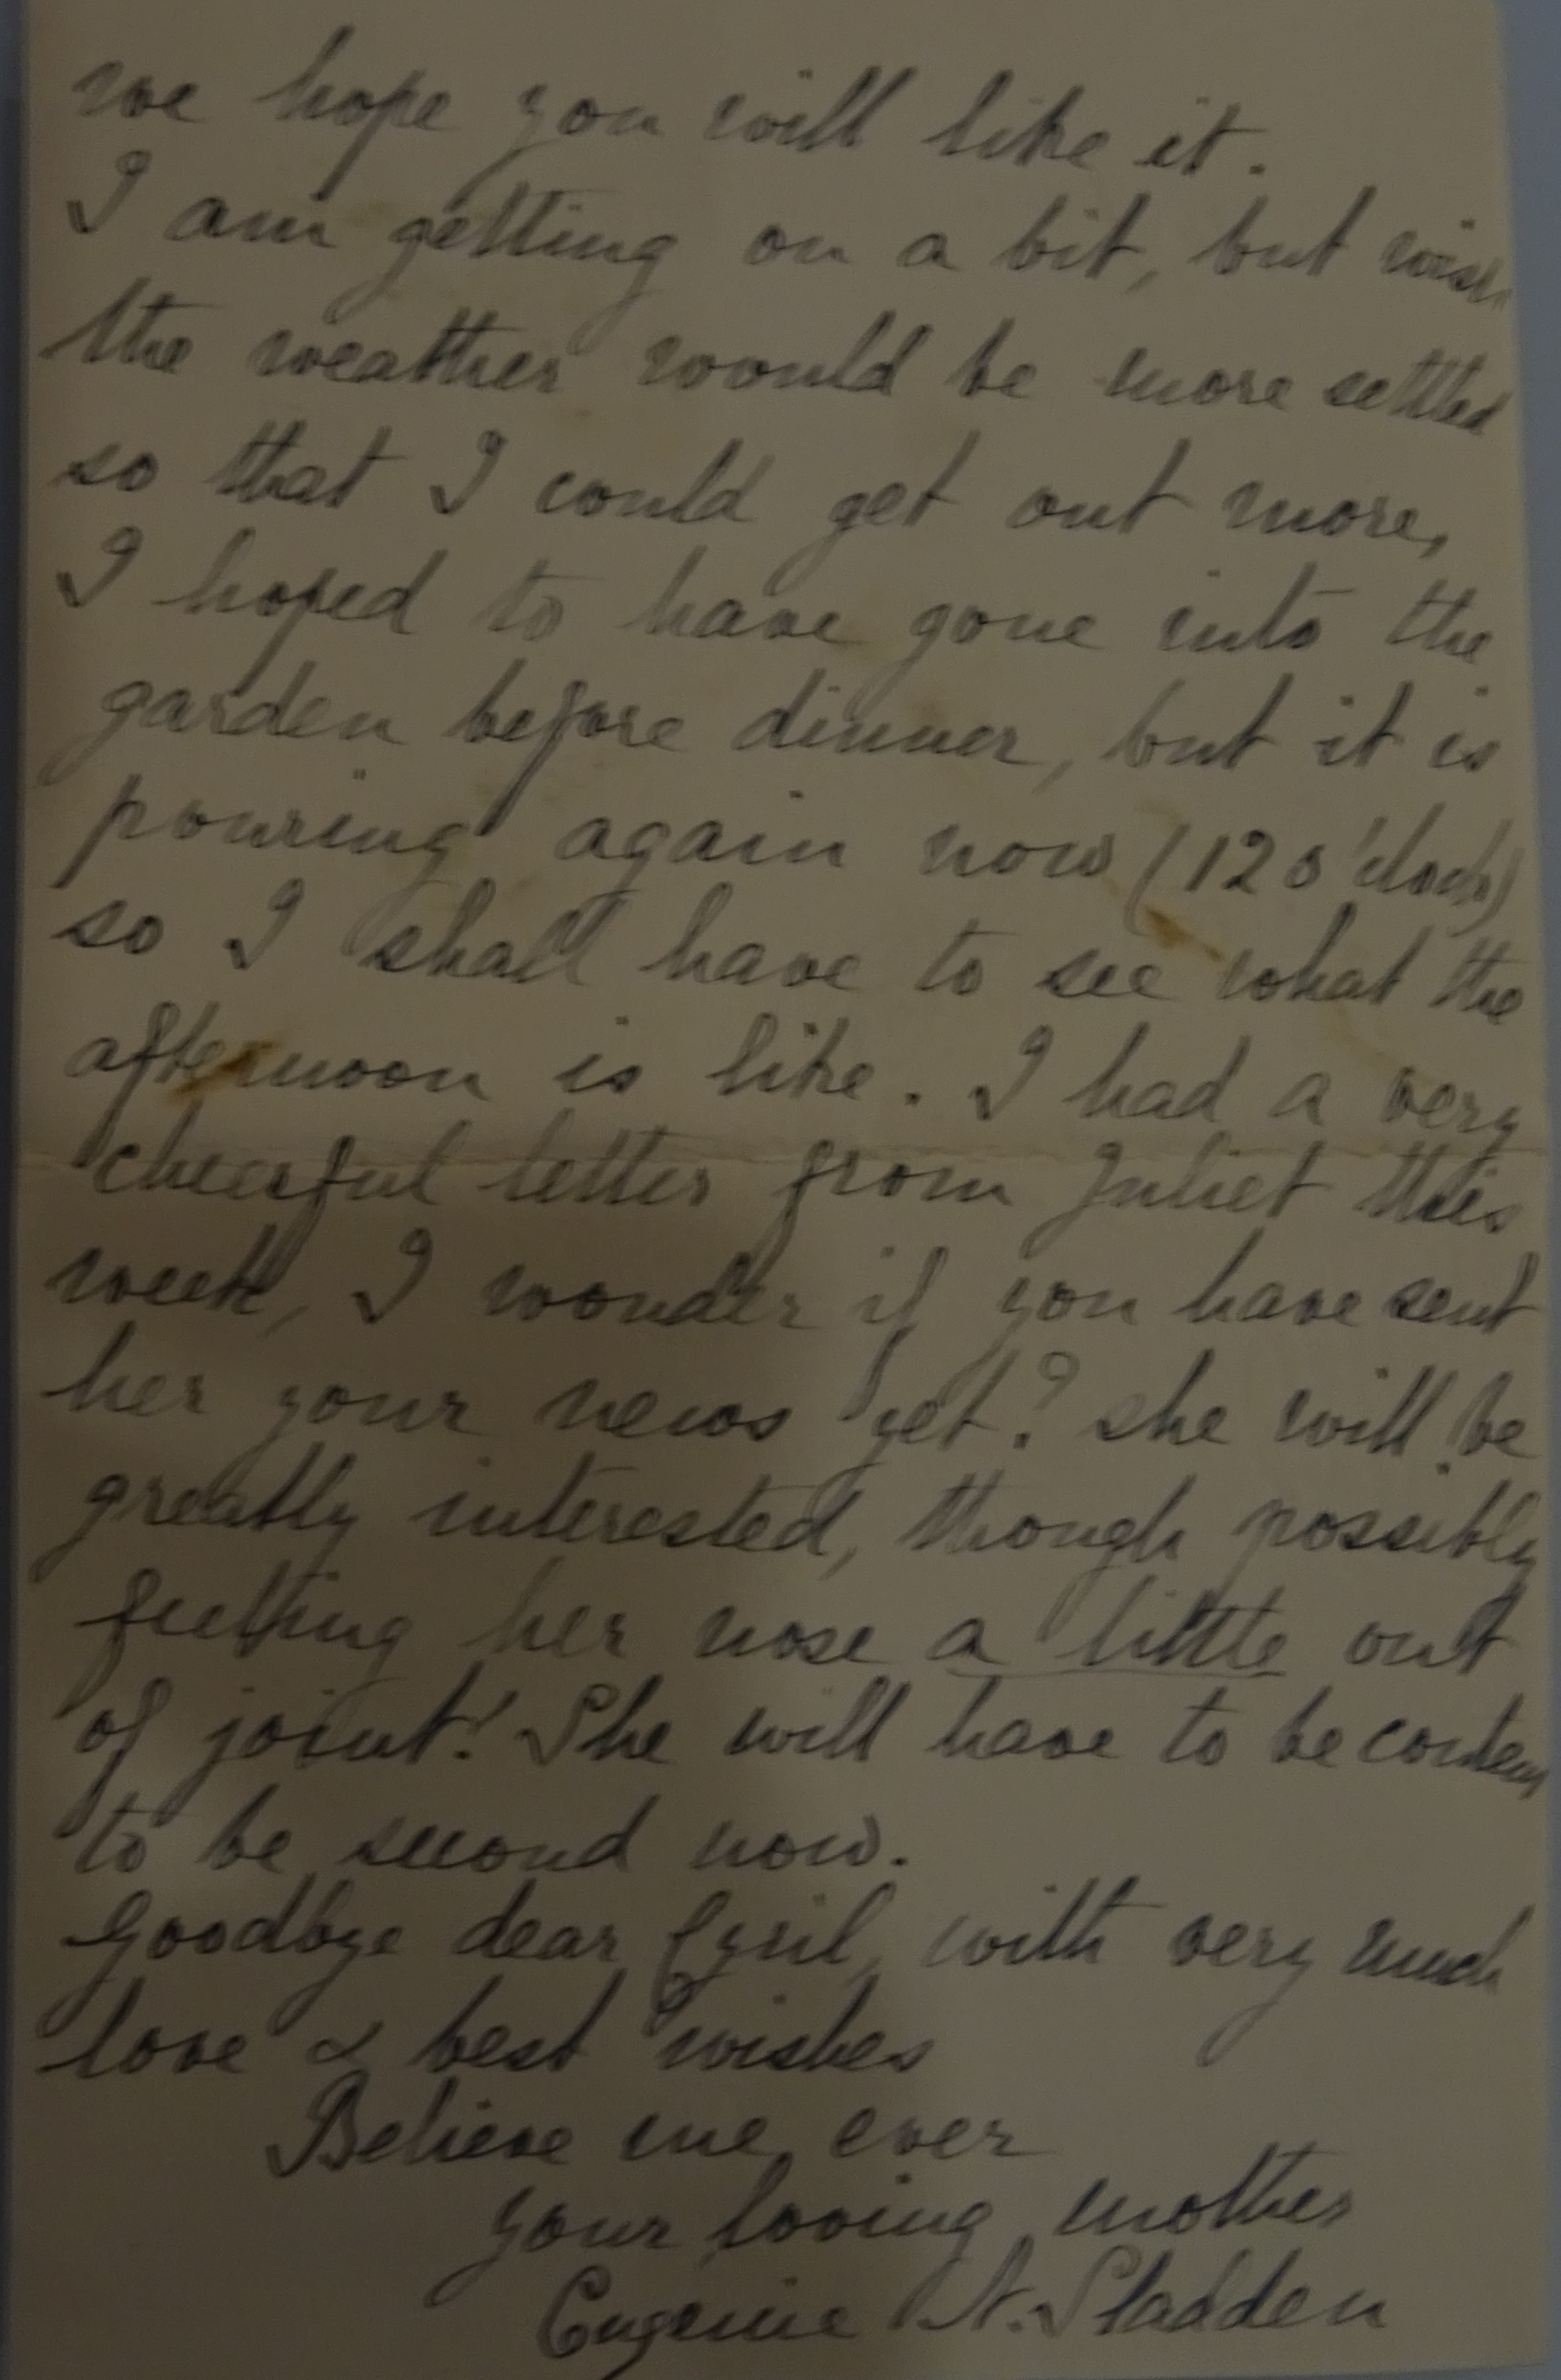 we hope you will like it.
I am getting on a bit, but wish
the weather would be more settled
so that I could get out more,
I hoped to have gone into the
garden before dinner, but it is
pouring again now (12 o'clock)
so I shall have to see what the
afternoon is like. I had a very
cheerful letter from Juliet this
week, I wonder if you have sent
her your news yet? she will be
greatly interested, though possibly
feeling her nose a little out
of joint! She will have to be content
to be second now.
Goodbye dear Cyril, with very much
love & best wishes
Believe me, ever
your loving mother
Eugenie N. Sladden